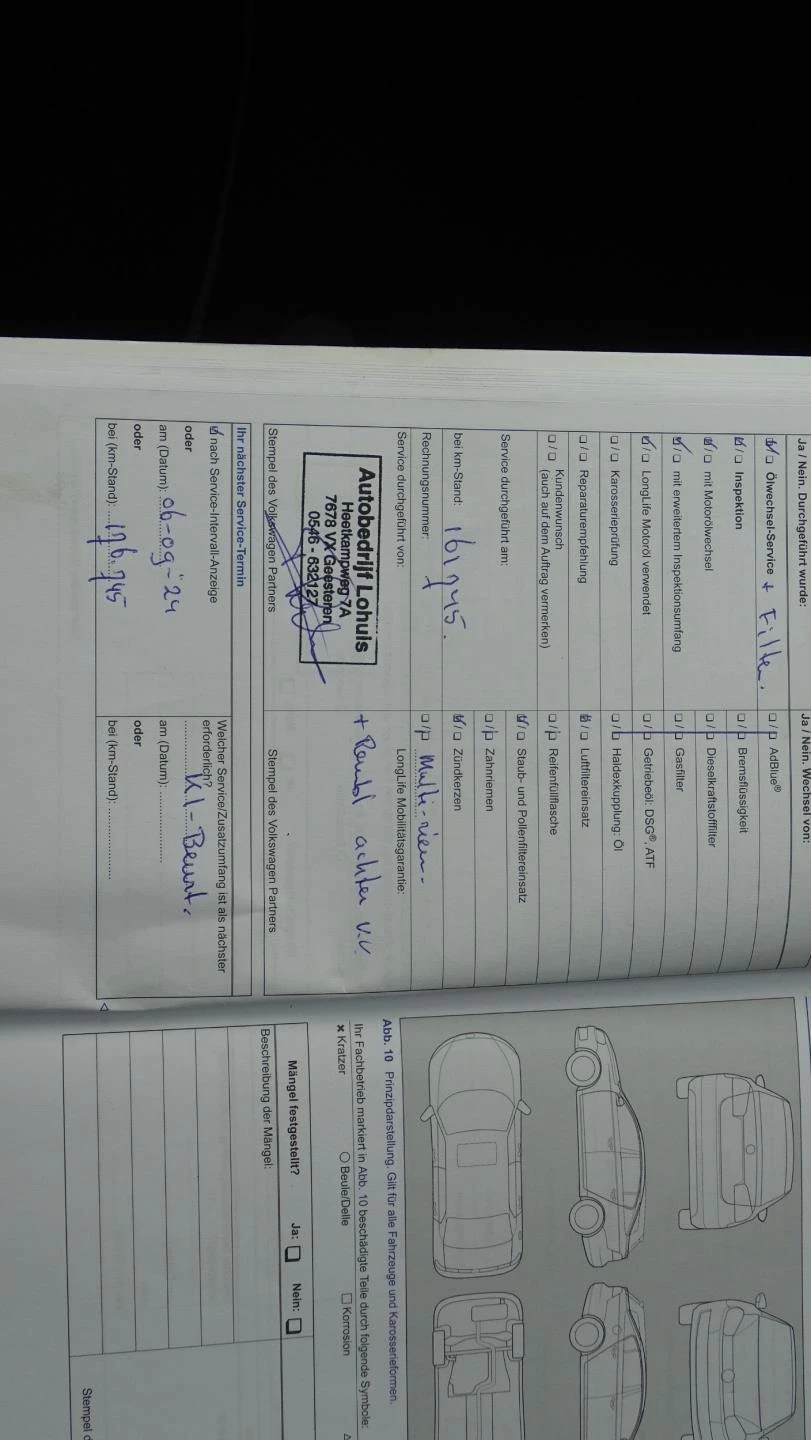 Ja / Nein. Durchgeführt wurde:
☑ / ☐ Ölwechsel-Service + Filter.
☑ / ☐ Inspektion
☑ / ☐ mit Motorölwechsel
☑ / ☐ mit erweitertem Inspektionsumfang
☑ / ☐ LongLife Motoröl verwendet
☐ / ☐ Karosserieprüfung
☐ / ☐ Reparaturempfehlung
☐ / ☐ Kundenwunsch
(auch auf dem Auftrag vermerken)
Service durchgeführt am:
bei km-Stand: 161745.
Rechnungsnummer:
Service durchgeführt von:
Autobedrijf Lohuis
Heetkampweg 7A
7678 VX Geesteren
0546 - 632127
Stempel des Volkswagen Partners
Ja / Nein. Wechsel von:
☐ / ☐ AdBlue®
☐ / ☐ Bremsflüssigkeit
☐ / ☐ Dieselkraftstofffilter
☐ / ☐ Gasfilter
☐ / ☐ Getriebeöl: DSG®, ATF
☐ / ☐ Haldexkupplung: Öl
☑ / ☐ Luftfiltereinsatz
☐ / ☐ Reifenfüllflasche
☑ / ☐ Staub- und Pollenfiltereinsatz
☐ / ☐ Zahnriemen
☑ / ☐ Zündkerzen
☐ / ☐ Multi-riem.
LongLife Mobilitätsgarantie:
+ achter V.V.
Stempel des Volkswagen Partners
Ihr nächster Service-Termin
☑ nach Service-Intervall-Anzeige
oder
am (Datum): 06-09-24
oder
bei (km-Stand): 176.745
Welcher Service/Zusatzumfang ist als nächster
erforderlich?
Kl-Beurt.
am (Datum):
oder
bei (km-Stand):
Abb. 10 Prinzipdarstellung. Gilt für alle Fahrzeuge und Karosserieformen.
Ihr Fachbetrieb markiert in Abb. 10 beschädigte Teile durch folgende Symbole:
✖ Kratzer ○ Beule/Delle ☐ Korrosion
Mängel festgestellt? Ja: ☐ Nein: ☐
Beschreibung der Mängel:
Stempel